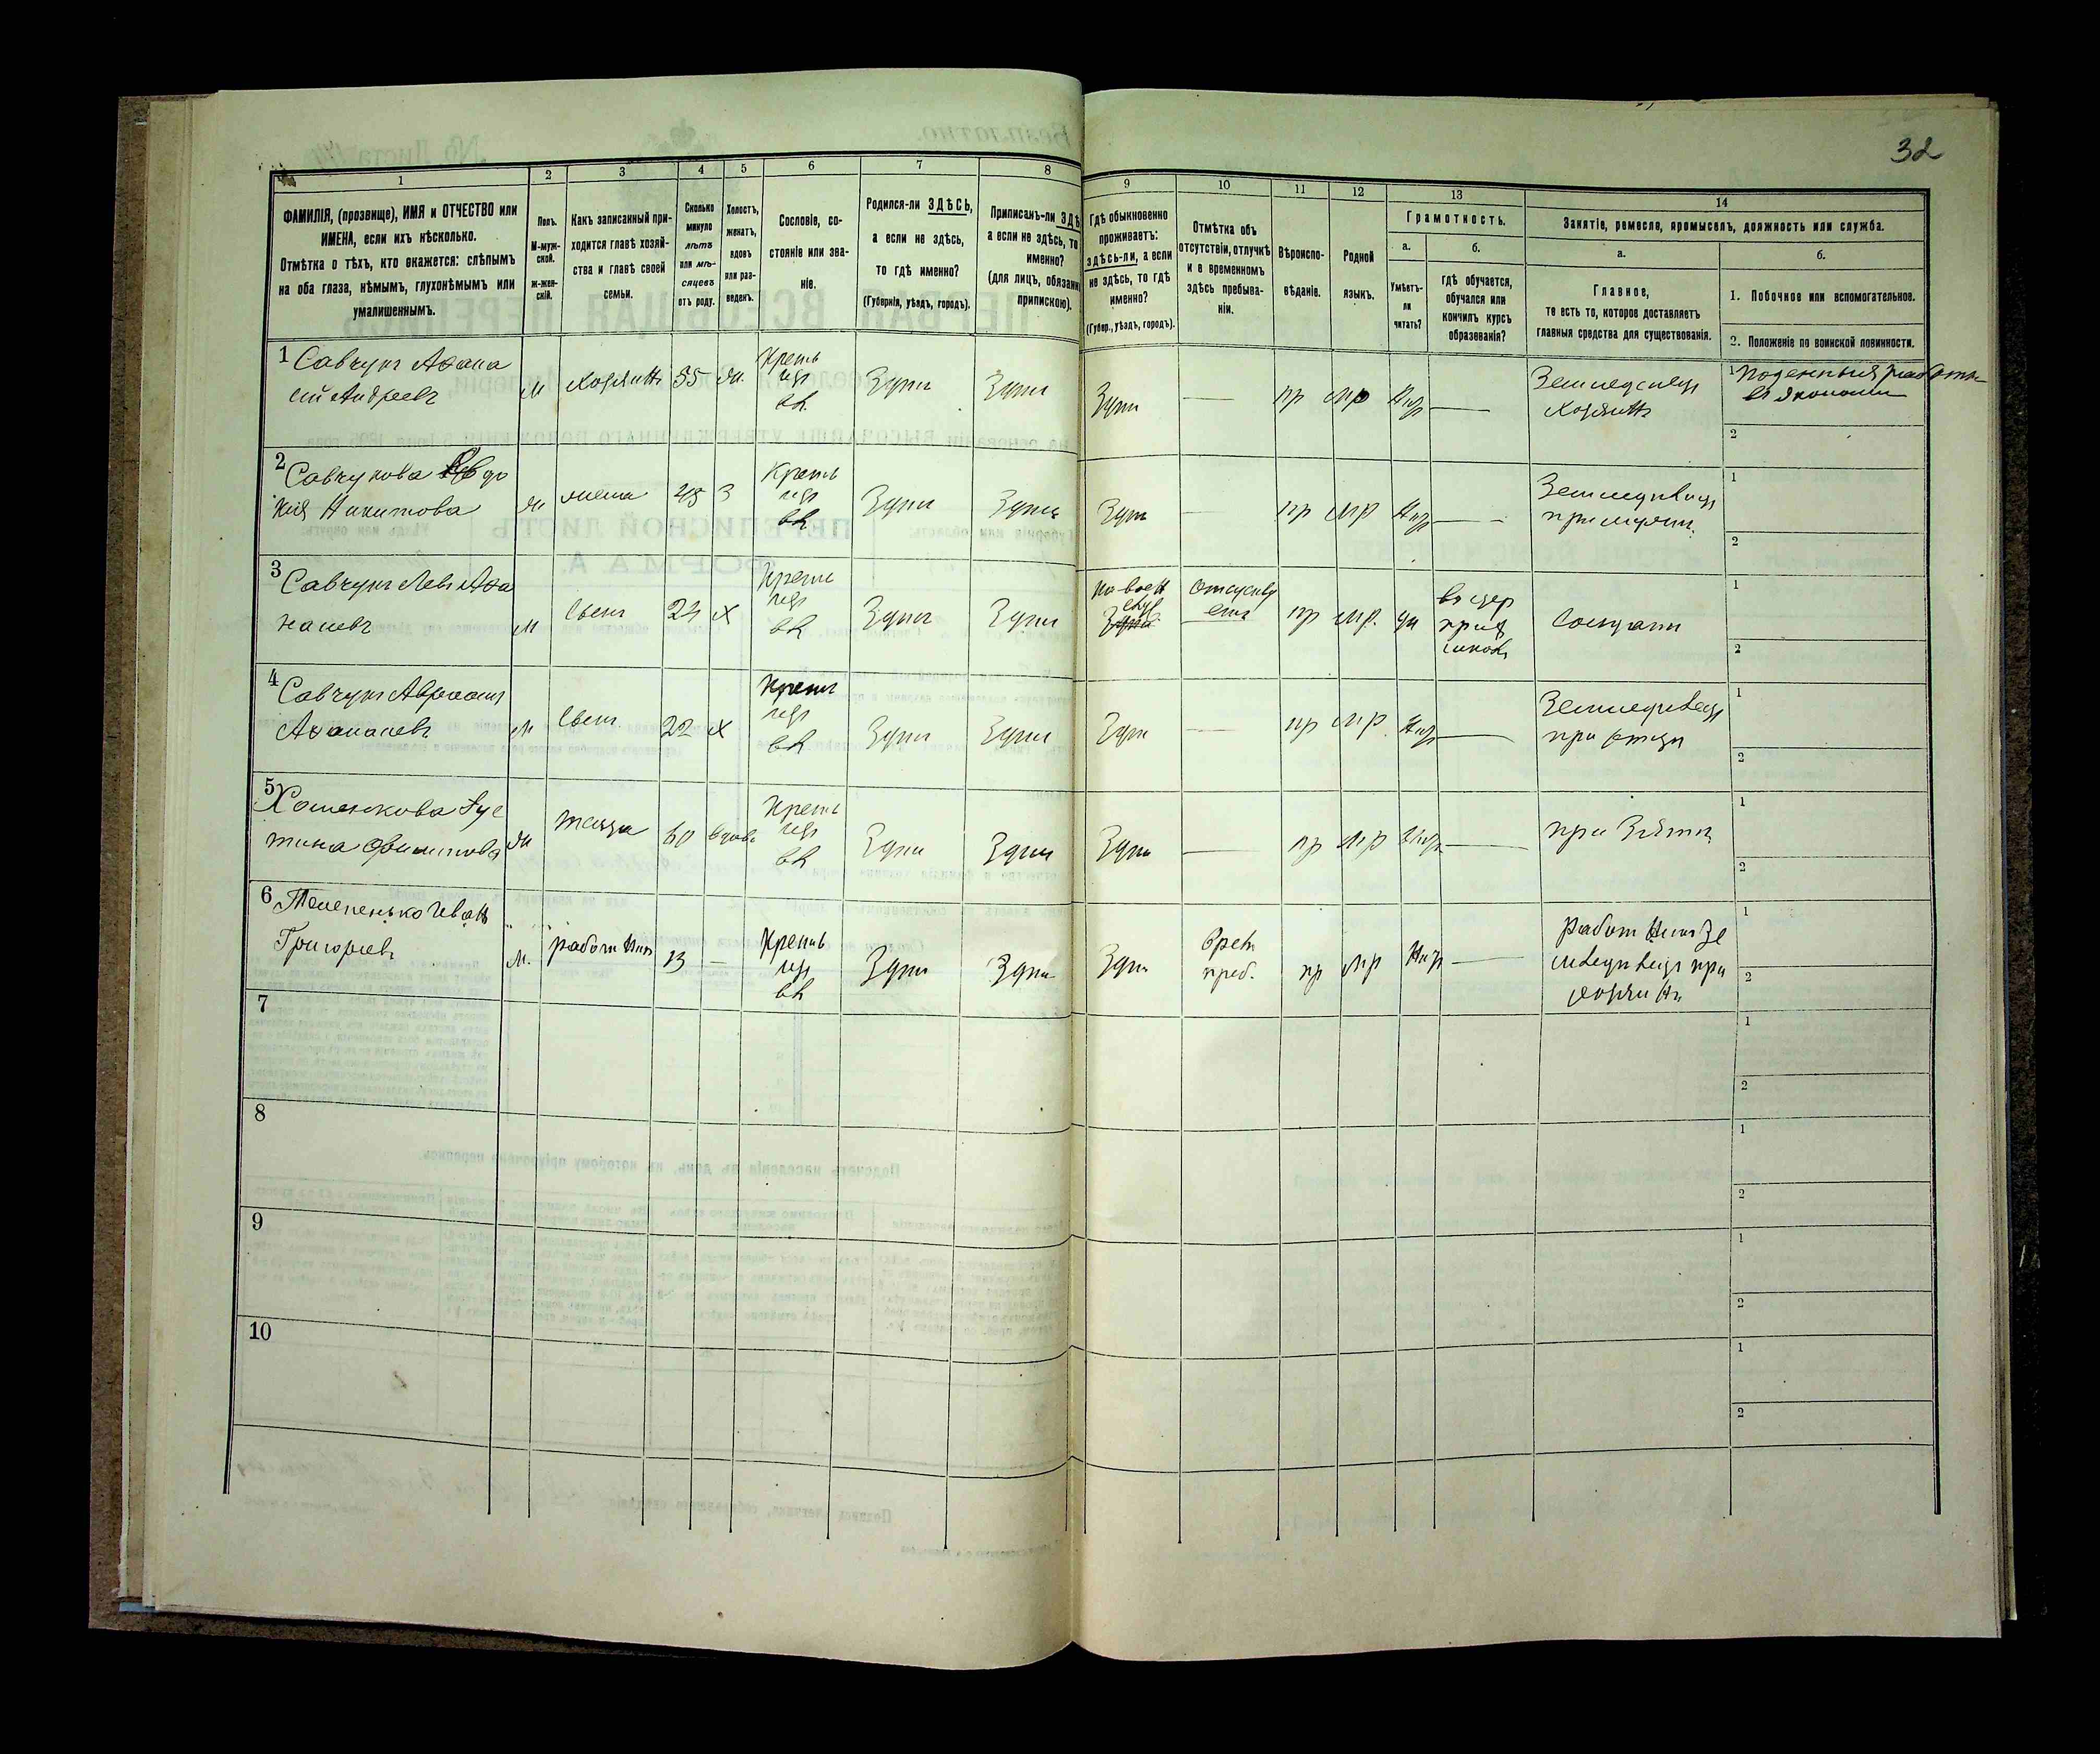 32
1
2
3
4
5
6
7
8
9
10
11
12
13
14
ФАМИЛІЯ, (прозвище), ИМЯ и ОТЧЕСТВО или
ИМЕНА, если ихъ нѣсколько.
Отмѣтка о тѣхъ, кто окажется: слѣпымъ
на оба глаза, нѣмымъ, глухонѣмымъ или
умалишеннымъ.
Полъ.
М-муж-
ской.
Ж-жен-
скій.
Какъ записанный при-
ходится главѣ хозяй-
ства и главѣ своей
семьи.
Сколько
минуло
лѣтъ
или мѣ-
сяцевъ
отъ роду.
Холостъ,
женатъ,
вдовъ
или раз-
веденъ.
Сословіе, со-
стояніе или зва-
ніе.
Родился-ли ЗДѢСЬ,
а если не здѣсь,
то гдѣ именно?
(Губернія, уѣздъ, городъ).
Приписанъ-ли ЗДѢ
а если не здѣсь, то
именно?
(для лицъ, обязан
припискою).
Гдѣ обыкновенно
проживаетъ:
здѣсь-ли, а если
не здѣсь, то гдѣ
именно?
(Губер., уѣздъ, городъ).
Отмѣтка объ
отсутствіи, отлучкѣ
и о временномъ
здѣсь пребыва-
ніи.
Вѣроиспо-
вѣданіе.
Родной
языкъ.
Грамотность.
а.
Умѣетъ-
ли
читать?
б.
гдѣ обучается,
обучался или
кончилъ курсъ
образованія?
Занятіе, ремесло, промыселъ, должность или служба.
а.
Главное,
то есть то, которое доставляетъ
главныя средства для существованія.
б.
1. Побочное или вспомогательное.
2. Положеніе по воинской повинности.
1 Савчукъ Афана
сій Андреевъ
м
хозяинъ
55
ж.
Крестья
изъ
вл.
Здѣсь
Здѣсь
Здѣсь
—
пр
мр
Нѣтъ
—
Земледелецъ
хозяинъ
1 Поденныя работы
въ экономіи
2
2 Савчукова Евдо
кія Никитова
ж
жена
48
З
Кресть
изъ
вл
Здѣсь
Здѣсь
Здѣсь
—
пр
мр
Нѣтъ
—
Земледелецъ
при мужѣ
1
2
3 Савчукъ Левъ Афа
насіевъ
м
Сынъ
23
х
Кресть
изъ
вл
Здѣсь
Здѣсь
На воен
служ
Отсутству
етъ
пр
мр.
да
въ цер
прих
школѣ
Солдатъ
1
2
4 Савчукъ Авраамъ
Афанасіевъ
м
Сынъ
22
х
Кресть
изъ
вл
Здѣсь
Здѣсь
Здѣсь
—
пр
мр
Нѣтъ
—
Земледелецъ
при отцѣ
1
2
5 Хоменкова Іус
тина Филиппова
ж
теща
60
вдова
Кресть
изъ
вл
Здѣсь
Здѣсь
Здѣсь
—
пр
мр
Нѣтъ
—
при Зятѣ
1
2
6 Телепенько Иванъ
Григорьевъ
м.
работникъ
13
—
Кресть
изъ
вл
Здѣсь
Здѣсь
Здѣсь
Врем
преб.
пр
мр
Нѣтъ
—
Работникъ Зе
мледелецъ при
хозяинѣ
1
2
7
1
2
8
1
2
9
1
2
10
1
2